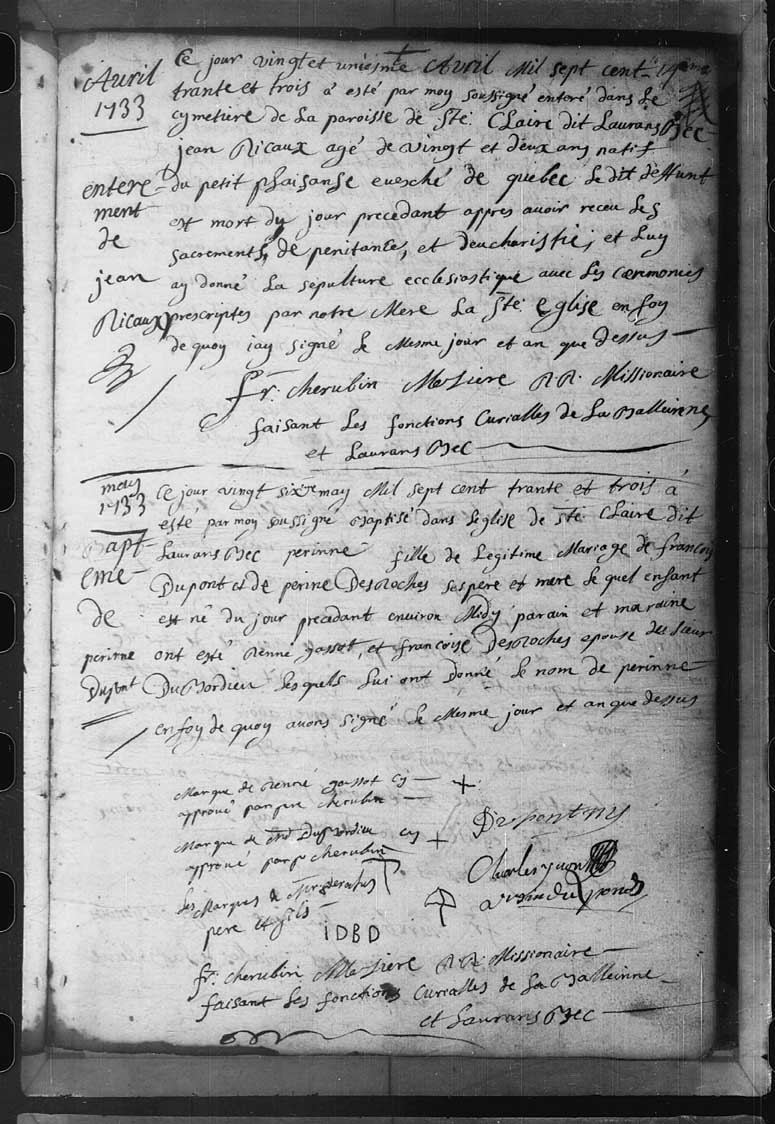 Avril
1733
Ce jour vingt et uniesme Avril Mil sept cent
trante et trois à esté par moy soussigné enteré dans le
cymetiere de La paroisse de Ste. CLaire dit Laurans Bec
jean Ricaux agé de vingt et deux ans natif
du petit plaisanse evesché de quebec Le dit deffunt
est mort du jour precedant appres avoir receu Les
sacrements de penitance, et deucharistie; et Luy
ay donné La sepulture ecclesiastique avec Les Ceremonies
prescriptes par notre Mere La Ste. eglise en foy
de quoy iay signé Le Mesme jour et an que dessus
entere-
ment
de
jean
Ricaux
fr. cherubin RR. Missionaire
faisant Les fonctions Curialles de La Balleinne
et Laurans Bec
may
1733
Ce jour vingt six may Mil sept cent trante et trois à
esté par moy soussigné Baptisé dans Leglise de Ste. CLaire dit
Laurans Bec perinne fille de Legitime Mariage de françois
Dupont et de perine DesRoches ses pere et mere Le quel enfant
est né du jour precedant environ Midy parain et maraine
ont esté Renné gassot, et francoise DesRoches epouse
DuBordieu Les quels Lui ont Donné Le nom de perinne
en foy de quoy avons signé Le Mesme jour et an que dessus
Bapt-
eme
De
perinne
Dupont
Marque de Renné gassot Cy +
aprouvé par fr cherubin
Marque de DuBordieu Cy +
aprouvé par fr cherubin
Les Marques de
pere et fils
IDBD
Charles
fr. cherubin RR. Missionaire
faisant Les fonctions Curialles de La Balleinne
et Laurans Bec